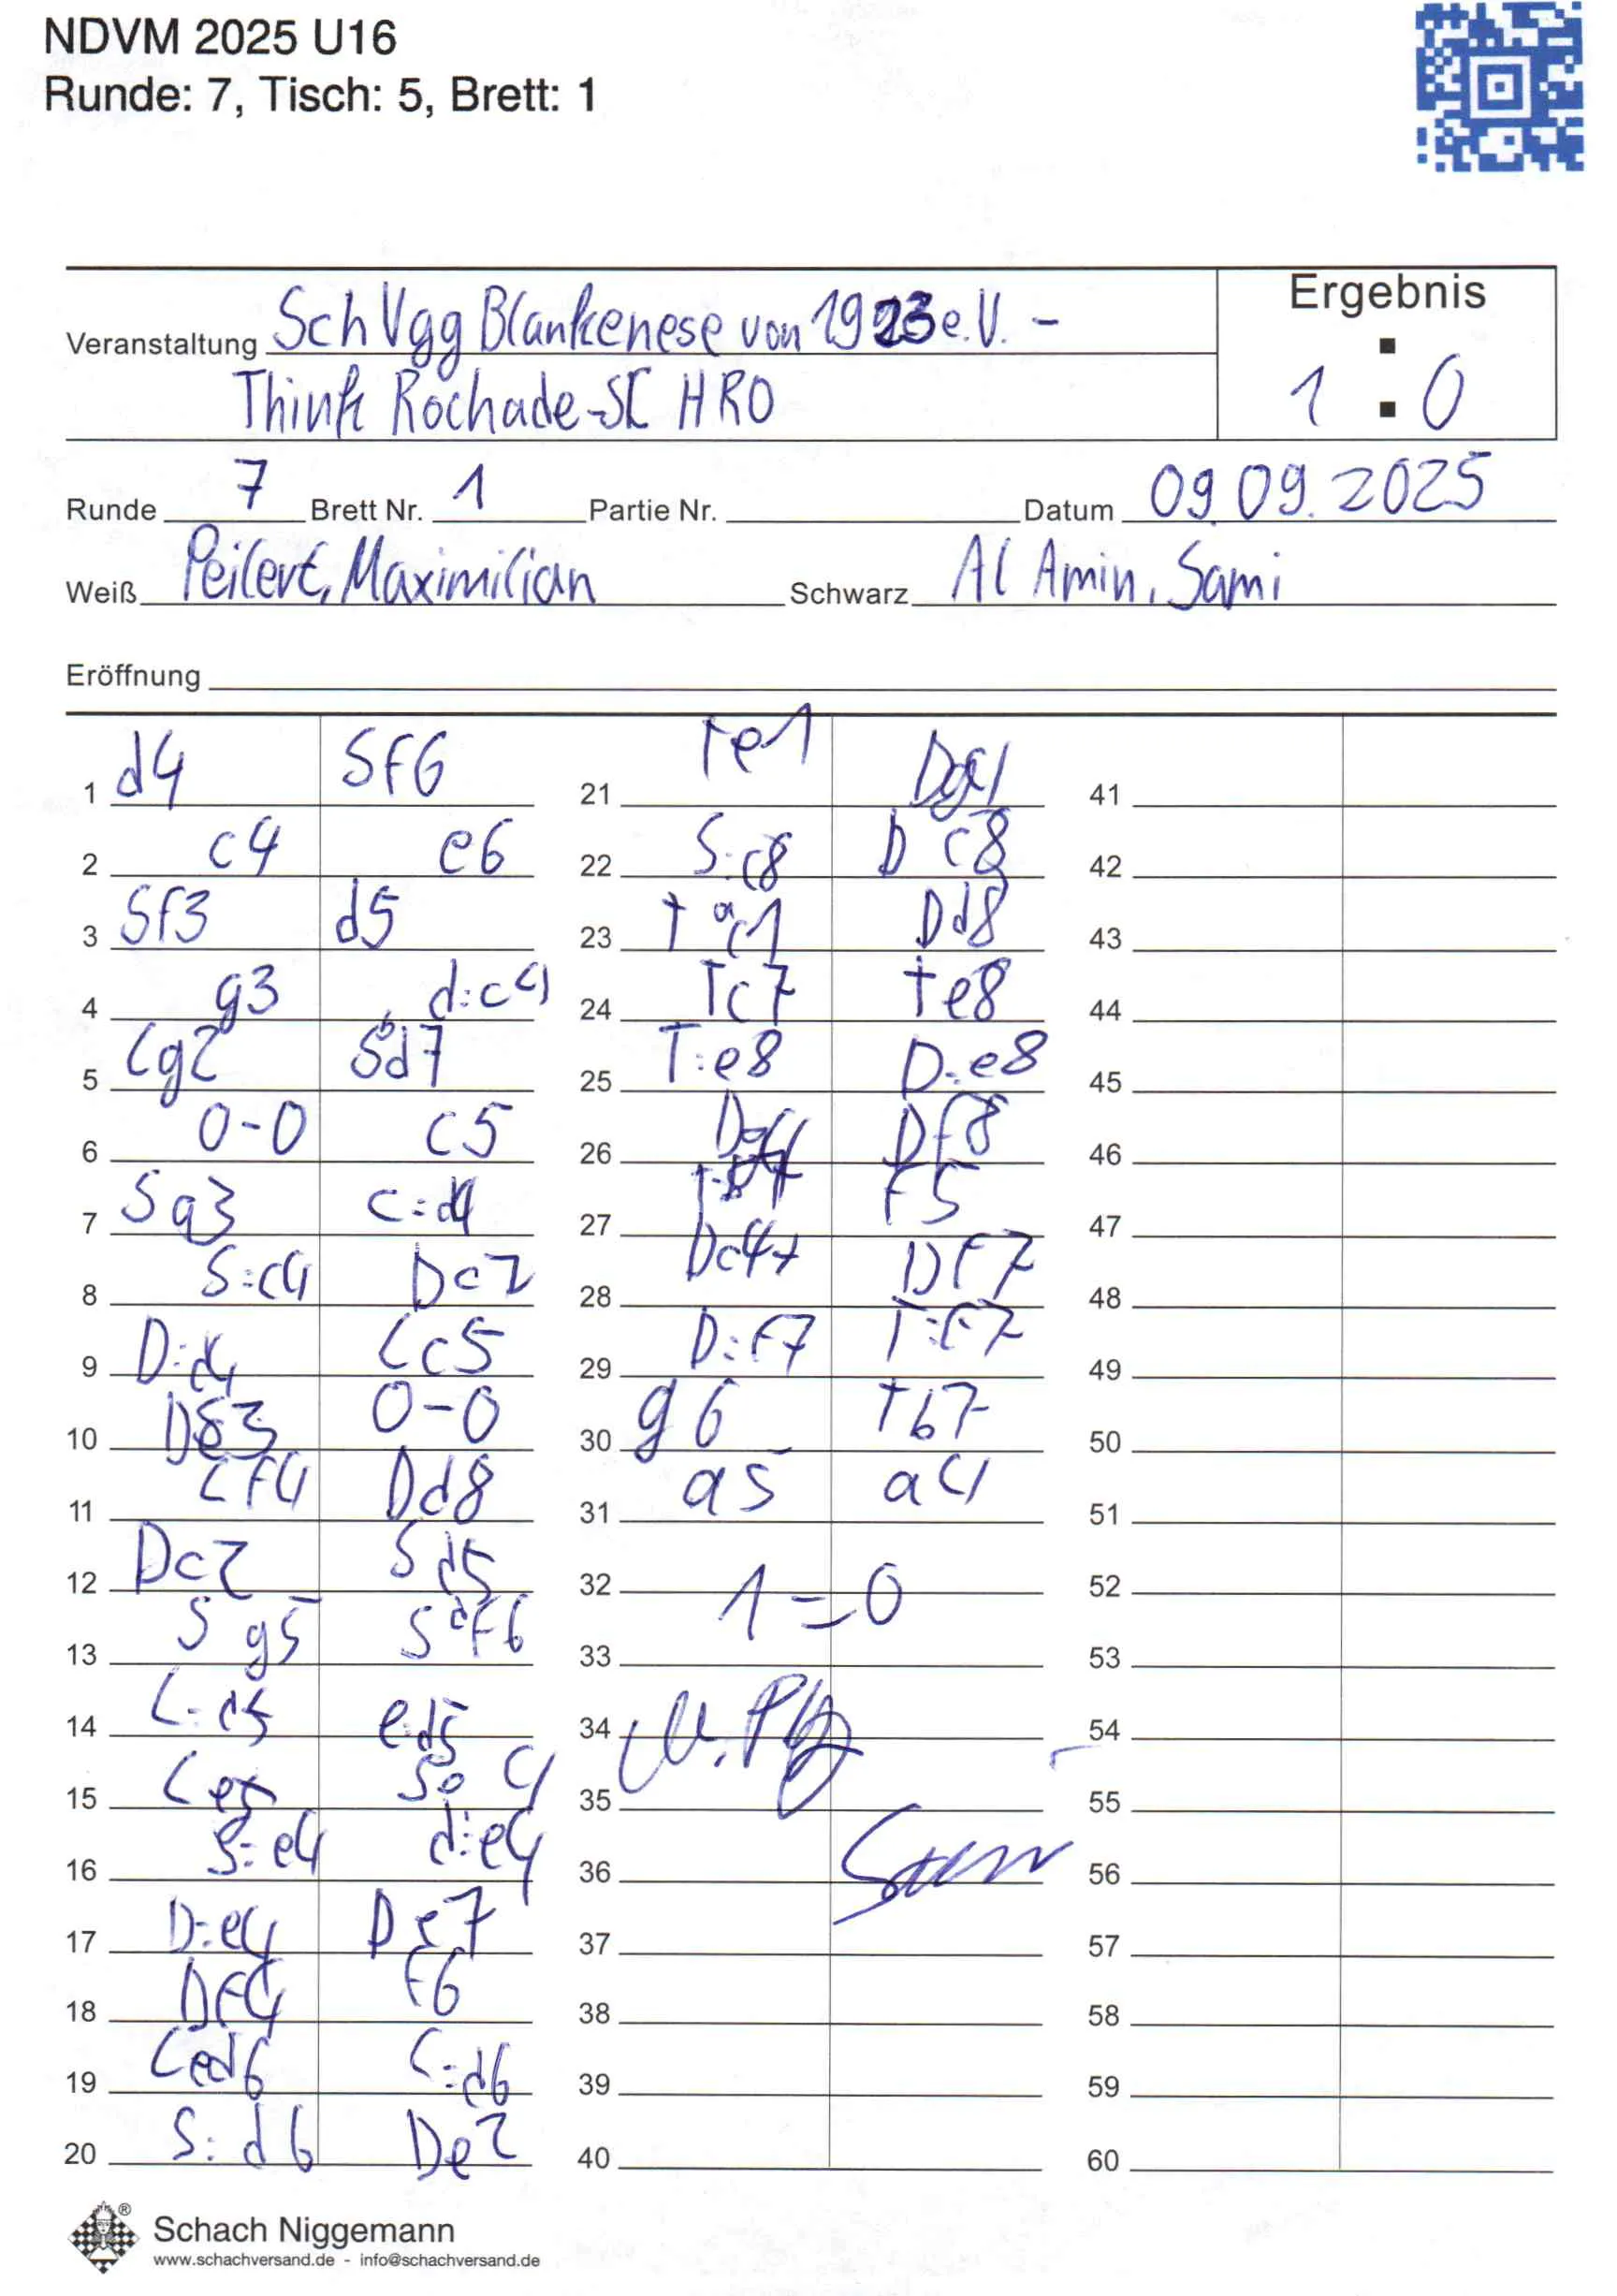 NDVM 2025 U16
Runde: 7, Tisch: 5, Brett: 1
Ergebnis
Veranstaltung SchVgg Blankenese von 1923 e.V. -
Think Rochade-SC HRO
1 : 0
Runde 7 Brett Nr. 1 Partie Nr. Datum 09.09.2025
Weiß Peilert, Maximilian Schwarz Al Amin, Sami
Eröffnung
1 d4 Sf6
2 c4 e6
3 Sf3 d5
4 g3 d:c4
5 Lg2 Sbd7
6 0-0 c5
7 Sa3 c:d4
8 S:c4 Dc7
9 D:d4 Lc5
10 0-0
11 Lf4 Dd8
12 Dc2 Sd5
13 Sg5 Sdf6
14 L:d5 e:d5
15 Le5 Se4
16 S:e4 d:e4
17 D:e4 De7
18 Df4 f6
19 Led6 L:d6
20 S:d6 De2
21 Te1
22 S:c8 D c8
23 Tac1 Dd8
24 Tc7 Te8
25 T:e8 D:e8
26 Df8
27 f5
28 Dc4+ Df7
29 D:f7 T:f7
30 g6 Tb7
31 a5 a4
32 1-0
33
34
35
36
37
38
39
40
41
42
43
44
45
46
47
48
49
50
51
52
53
54
55
56
57
58
59
60
Schach Niggemann
www.schachversand.de - info@schachversand.de